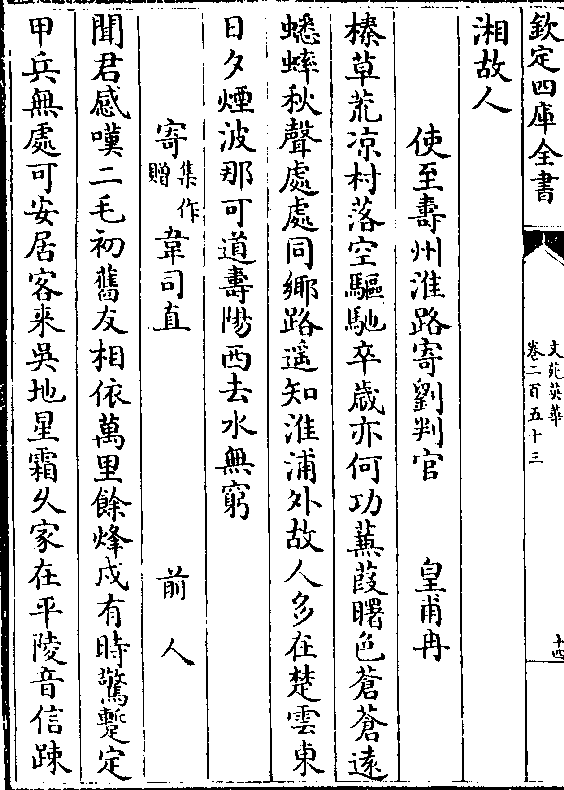 欽定四庫全書
文苑英華
卷二百五十三
十四
湘故人
使至壽州淮路寄劉判官 皇甫冉
榛草荒凉村落空驅馳卒歲亦何功蒹葭曙色蒼蒼遠
蟋蟀秋聲處處同鄉路遥知淮浦外故人多在楚雲東
日夕煙波那可道壽陽西去水無窮
寄集作贈韋司直 前人
聞君感嘆二毛初舊友相依萬里餘烽戍有時驚蹔定
甲兵無處可安居客来吳地星霜久家在平陵音信踈